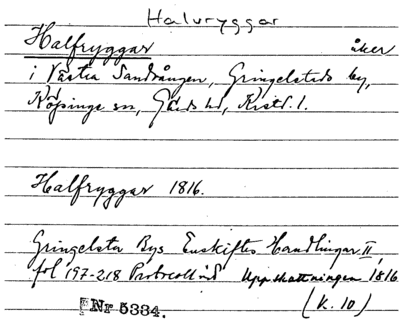 Halvryggar
Halfryggar åker
i Västra Sandvången, Gringelstads by,
Köpinge sn, Gärds hd, Krist. l.
Halfryggar 1816.
Gringelsta Bys Enskiftes Handlingar II,
fol 197-218 Protocoll vid Uppskattningen 1816
(K. 10)
Nr 5334.